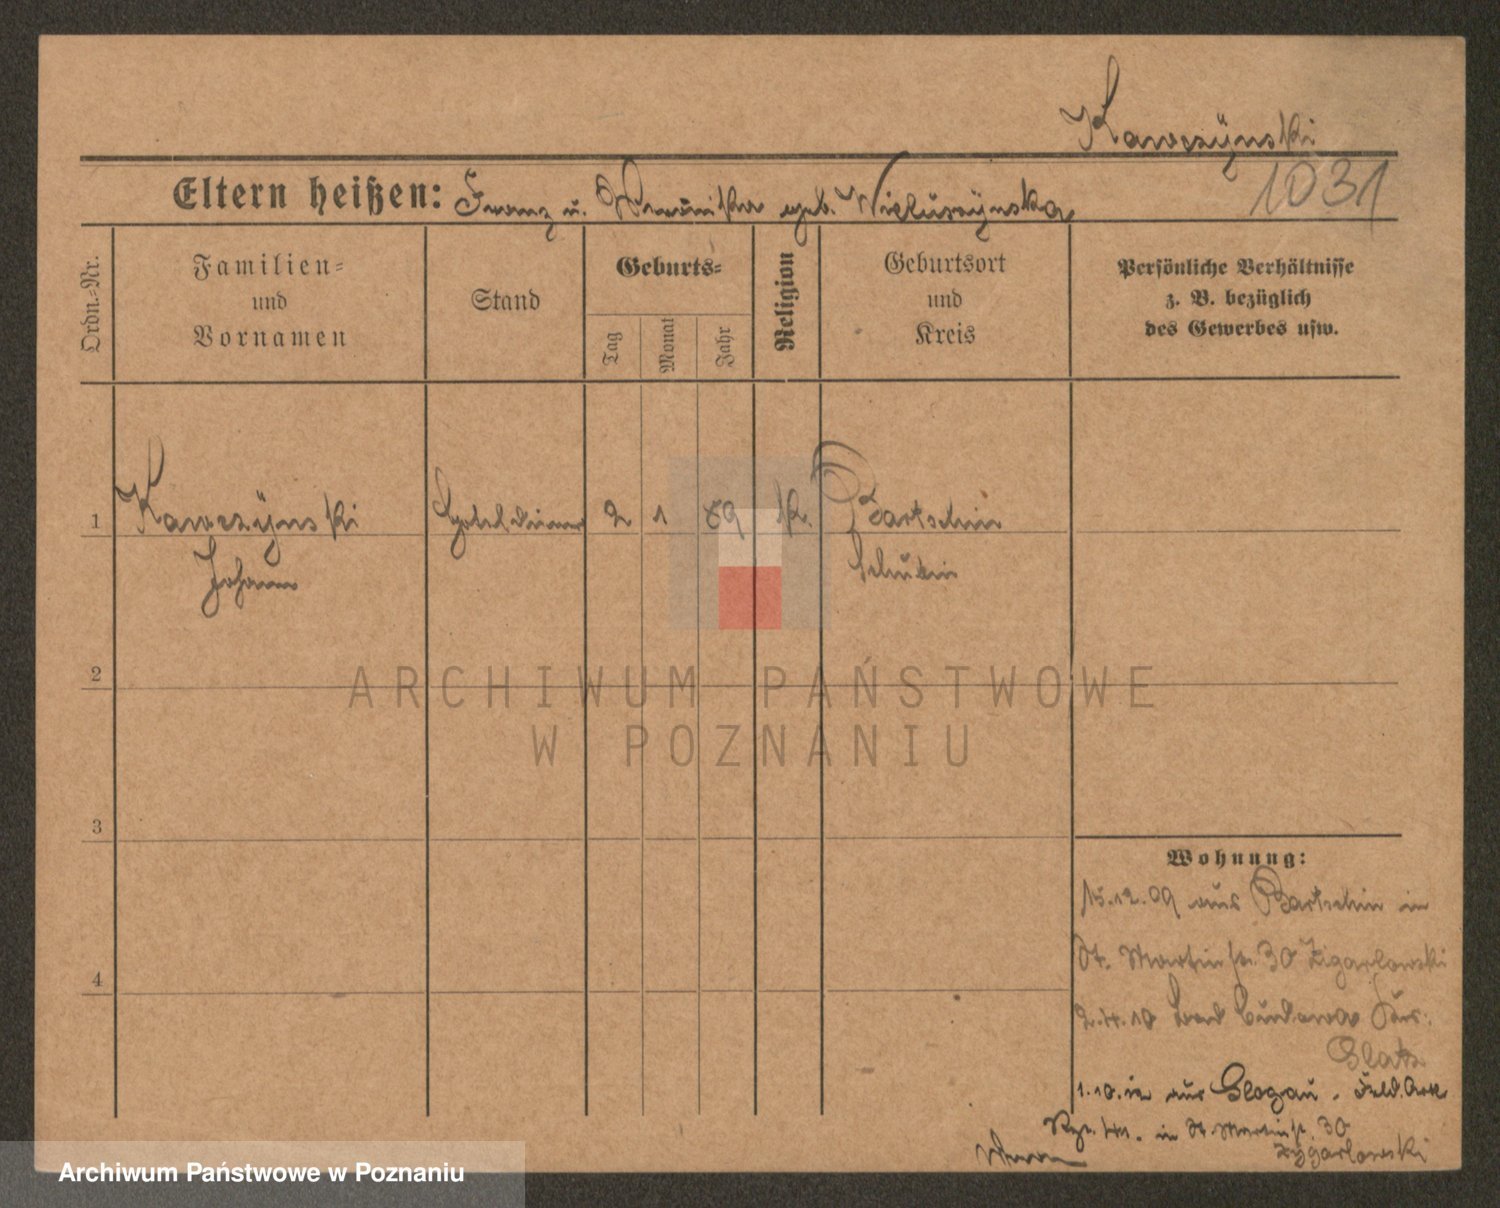 Kawczÿnski
Eltern heißen: Franz u. Veronika geb. Wieluszÿnska
1031
Ordn.-Nr.
Familien-
und
Vornamen
Stand
Geburts-
Tag
Monat
Jahr
Religion
Geburtsort
und
Kreis
Persönliche Verhältnisse
z. B. bezüglich
des Gewerbes usw.
1
Kawczÿnski
Hoteldiener
2
1
89
k.
Bartschin
Johann
Schubin
2
ARCHIWUM PAŃSTWOWE
W POZNANIU
3
Wohnung:
15.12.09 aus Bartschin in
St. Martinstr. 30 Zigarlowski
4
2.4.10 Bad Cudowa
Glatz
1.10.12 aus Glogau. Feld. Art.
Rgt. 41. in St. Martinstr. 30
Zÿgarlowski
Archiwum Państwowe w Poznaniu